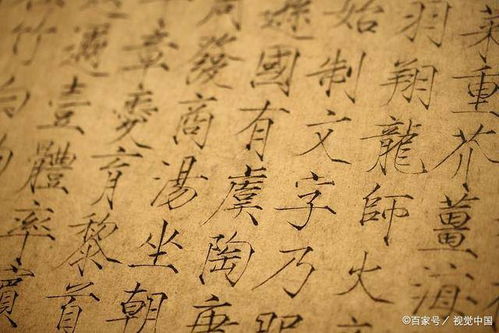 菜重芥薑海
羽翔龍師火
始制文字乃
遜國有虞陶唐
周發商湯坐朝
章愛育黎首
邇壹體率賓
竹
©百家号／视觉中国